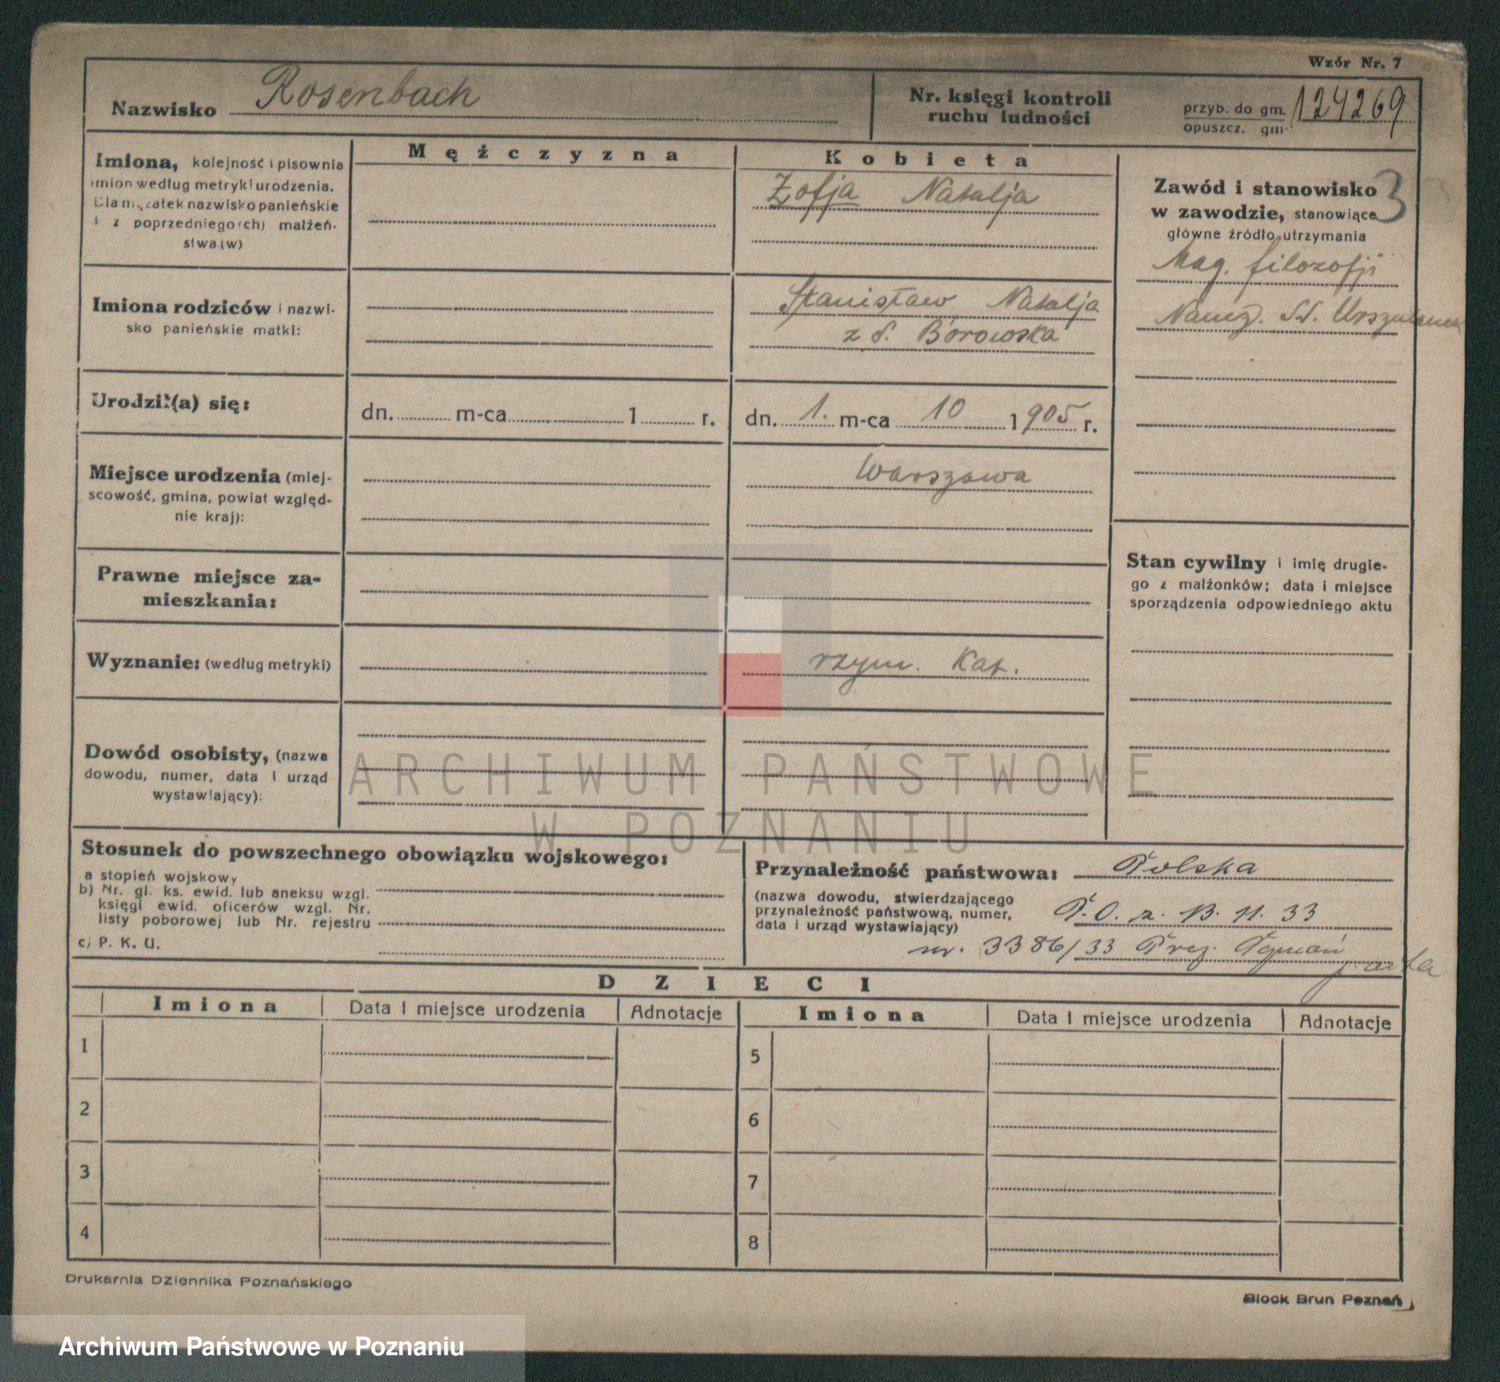 Wzór Nr. 7
Nazwisko Rosenbach
Nr. księgi kontroli
ruchu ludności
przyb. do gm. 124269
opuszcz. gm.
Imiona, kolejność i pisownia
imion według metryki urodzenia.
Dla mężatek nazwisko panieńskie
i z poprzedniego(ch) małżeń-
stwa(w)
Mężczyzna
Kobieta
Zofja Natalja
Zawód i stanowisko 3
w zawodzie, stanowiące
główne źródło utrzymania
Mag. filozofji
Naucz. SS. Urszulanek
Imiona rodziców i nazwi-
sko panieńskie matki:
Stanisław Natalja
z d. Borowska
Urodził(a) się:
dn. m-ca 1 r.
dn. 1. m-ca 10 1905 r.
Miejsce urodzenia (miej-
scowość, gmina, powiat względ-
nie kraj):
Warszawa
Prawne miejsce za-
mieszkania:
Stan cywilny i imię drugie-
go z małżonków; data i miejsce
sporządzenia odpowiedniego aktu
Wyznanie: (według metryki)
rzym. Kat.
Dowód osobisty, (nazwa
dowodu, numer, data i urząd
wystawiający):
ARCHIWUM PAŃSTWOWE
W POZNANIU
Stosunek do powszechnego obowiązku wojskowego:
a stopień wojskowy
b) Nr. gl. ks. ewid. lub aneksu wzgl.
księgi ewid. oficerów wzgl. Nr.
listy poborowej lub Nr. rejestru
c) P. K. U.
Przynależność państwowa: Polska
(nazwa dowodu, stwierdzającego
przynależność państwową, numer,
data i urząd wystawiający)
P.O. z. 13. 11. 33
nr. 3386/33 Prez. Poznań
DZIECI
Imiona
Data i miejsce urodzenia
Adnotacje
Imiona
Data i miejsce urodzenia
Adnotacje
1
5
2
6
3
7
4
8
Drukarnia Dziennika Poznańskiego
Block Brun Poznań
Archiwum Państwowe w Poznaniu